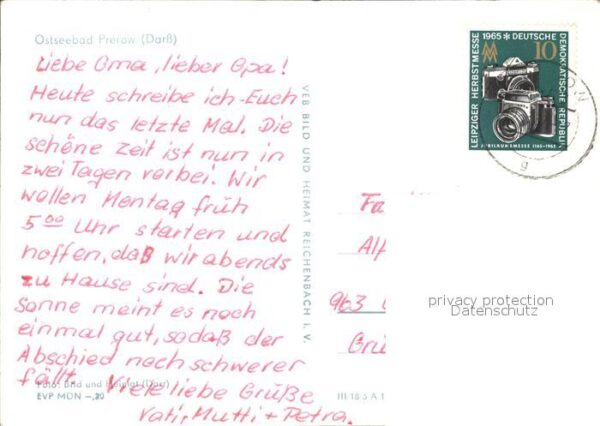 Ostseebad Prerow (Darß)
Liebe Oma, lieber Opa!
Heute schreibe ich Euch
nun das letzte Mal. Die
schöne Zeit ist nun in
zwei Tagen vorbei. Wir
wollen Montag früh
5.00 Uhr starten und
hoffen, daß wir abends
zu Hause sind. Die
Sonne meint es noch
einmal gut, sodaß der
Abschied noch schwerer
fällt. Viele liebe Grüße
Vati, Mutti + Petra.
Foto: Bild und Heimat (Darr)
EVP MDN –,20
III 18 5 A 1
VEB BILD UND HEIMAT REICHENBACH I. V.
LEIPZIGER HERBSTMESSE
1965 * DEUTSCHE
DEMOKRATISCHE REPUBLIK
MM 10
JUBILÄUMSMESSE 1165-1965
g
Fa
Alf
963
Grü
privacy protection
Datenschutz